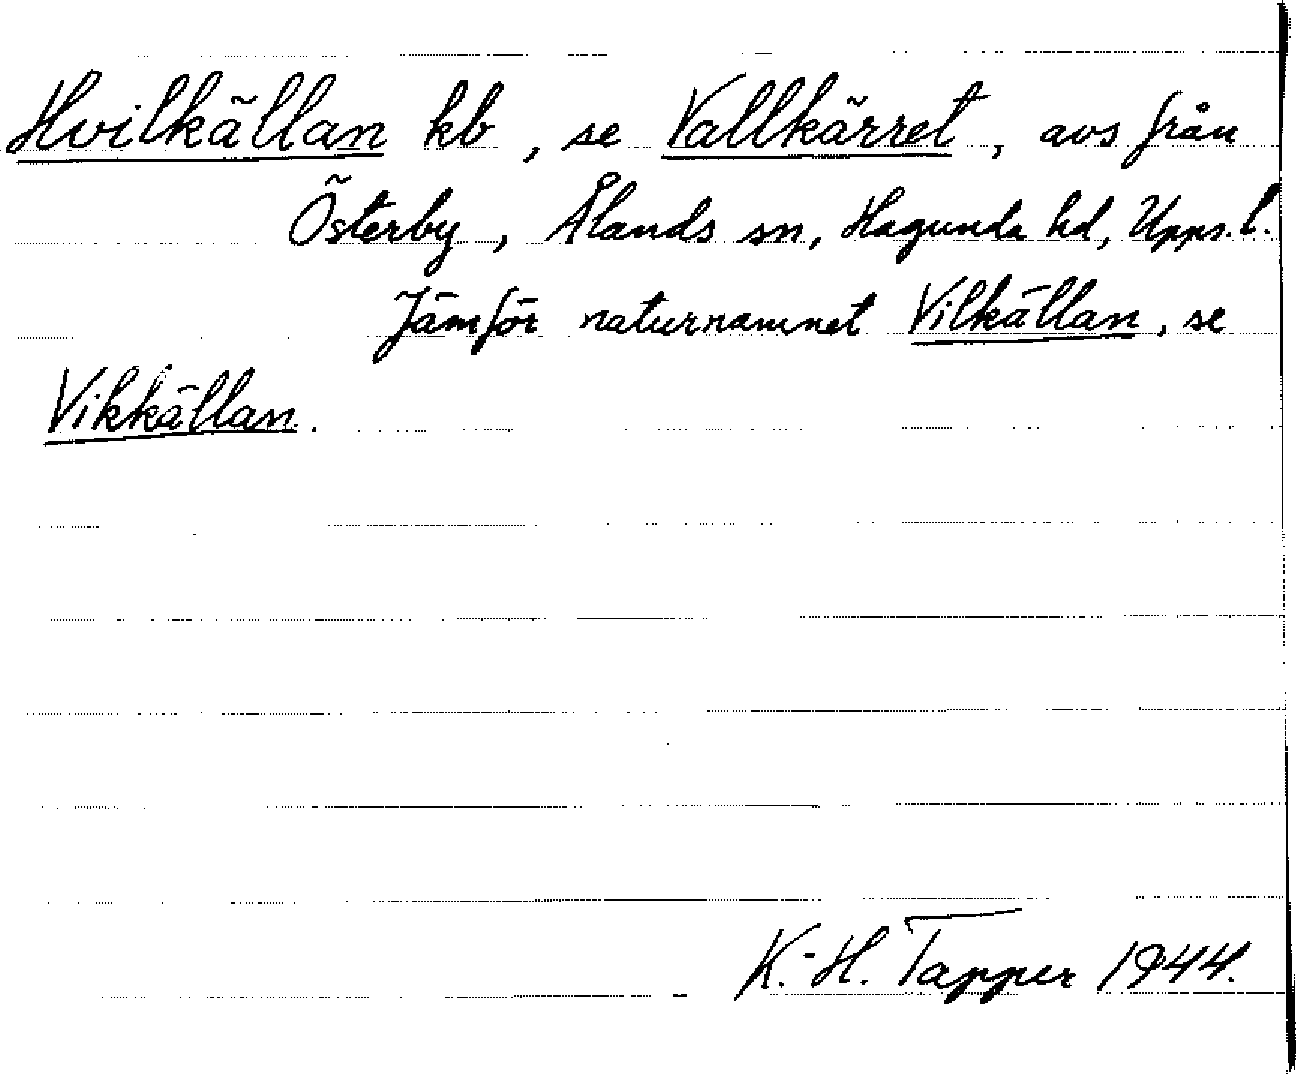 Hvilkällan kb, se Vallkärret, avs från
Österby, Ålands sn, Hagunda hd, Upps. l.
Jämför naturnamnet Vilkällan, se
Vikkällan.
K.-H. Tapper 1944.